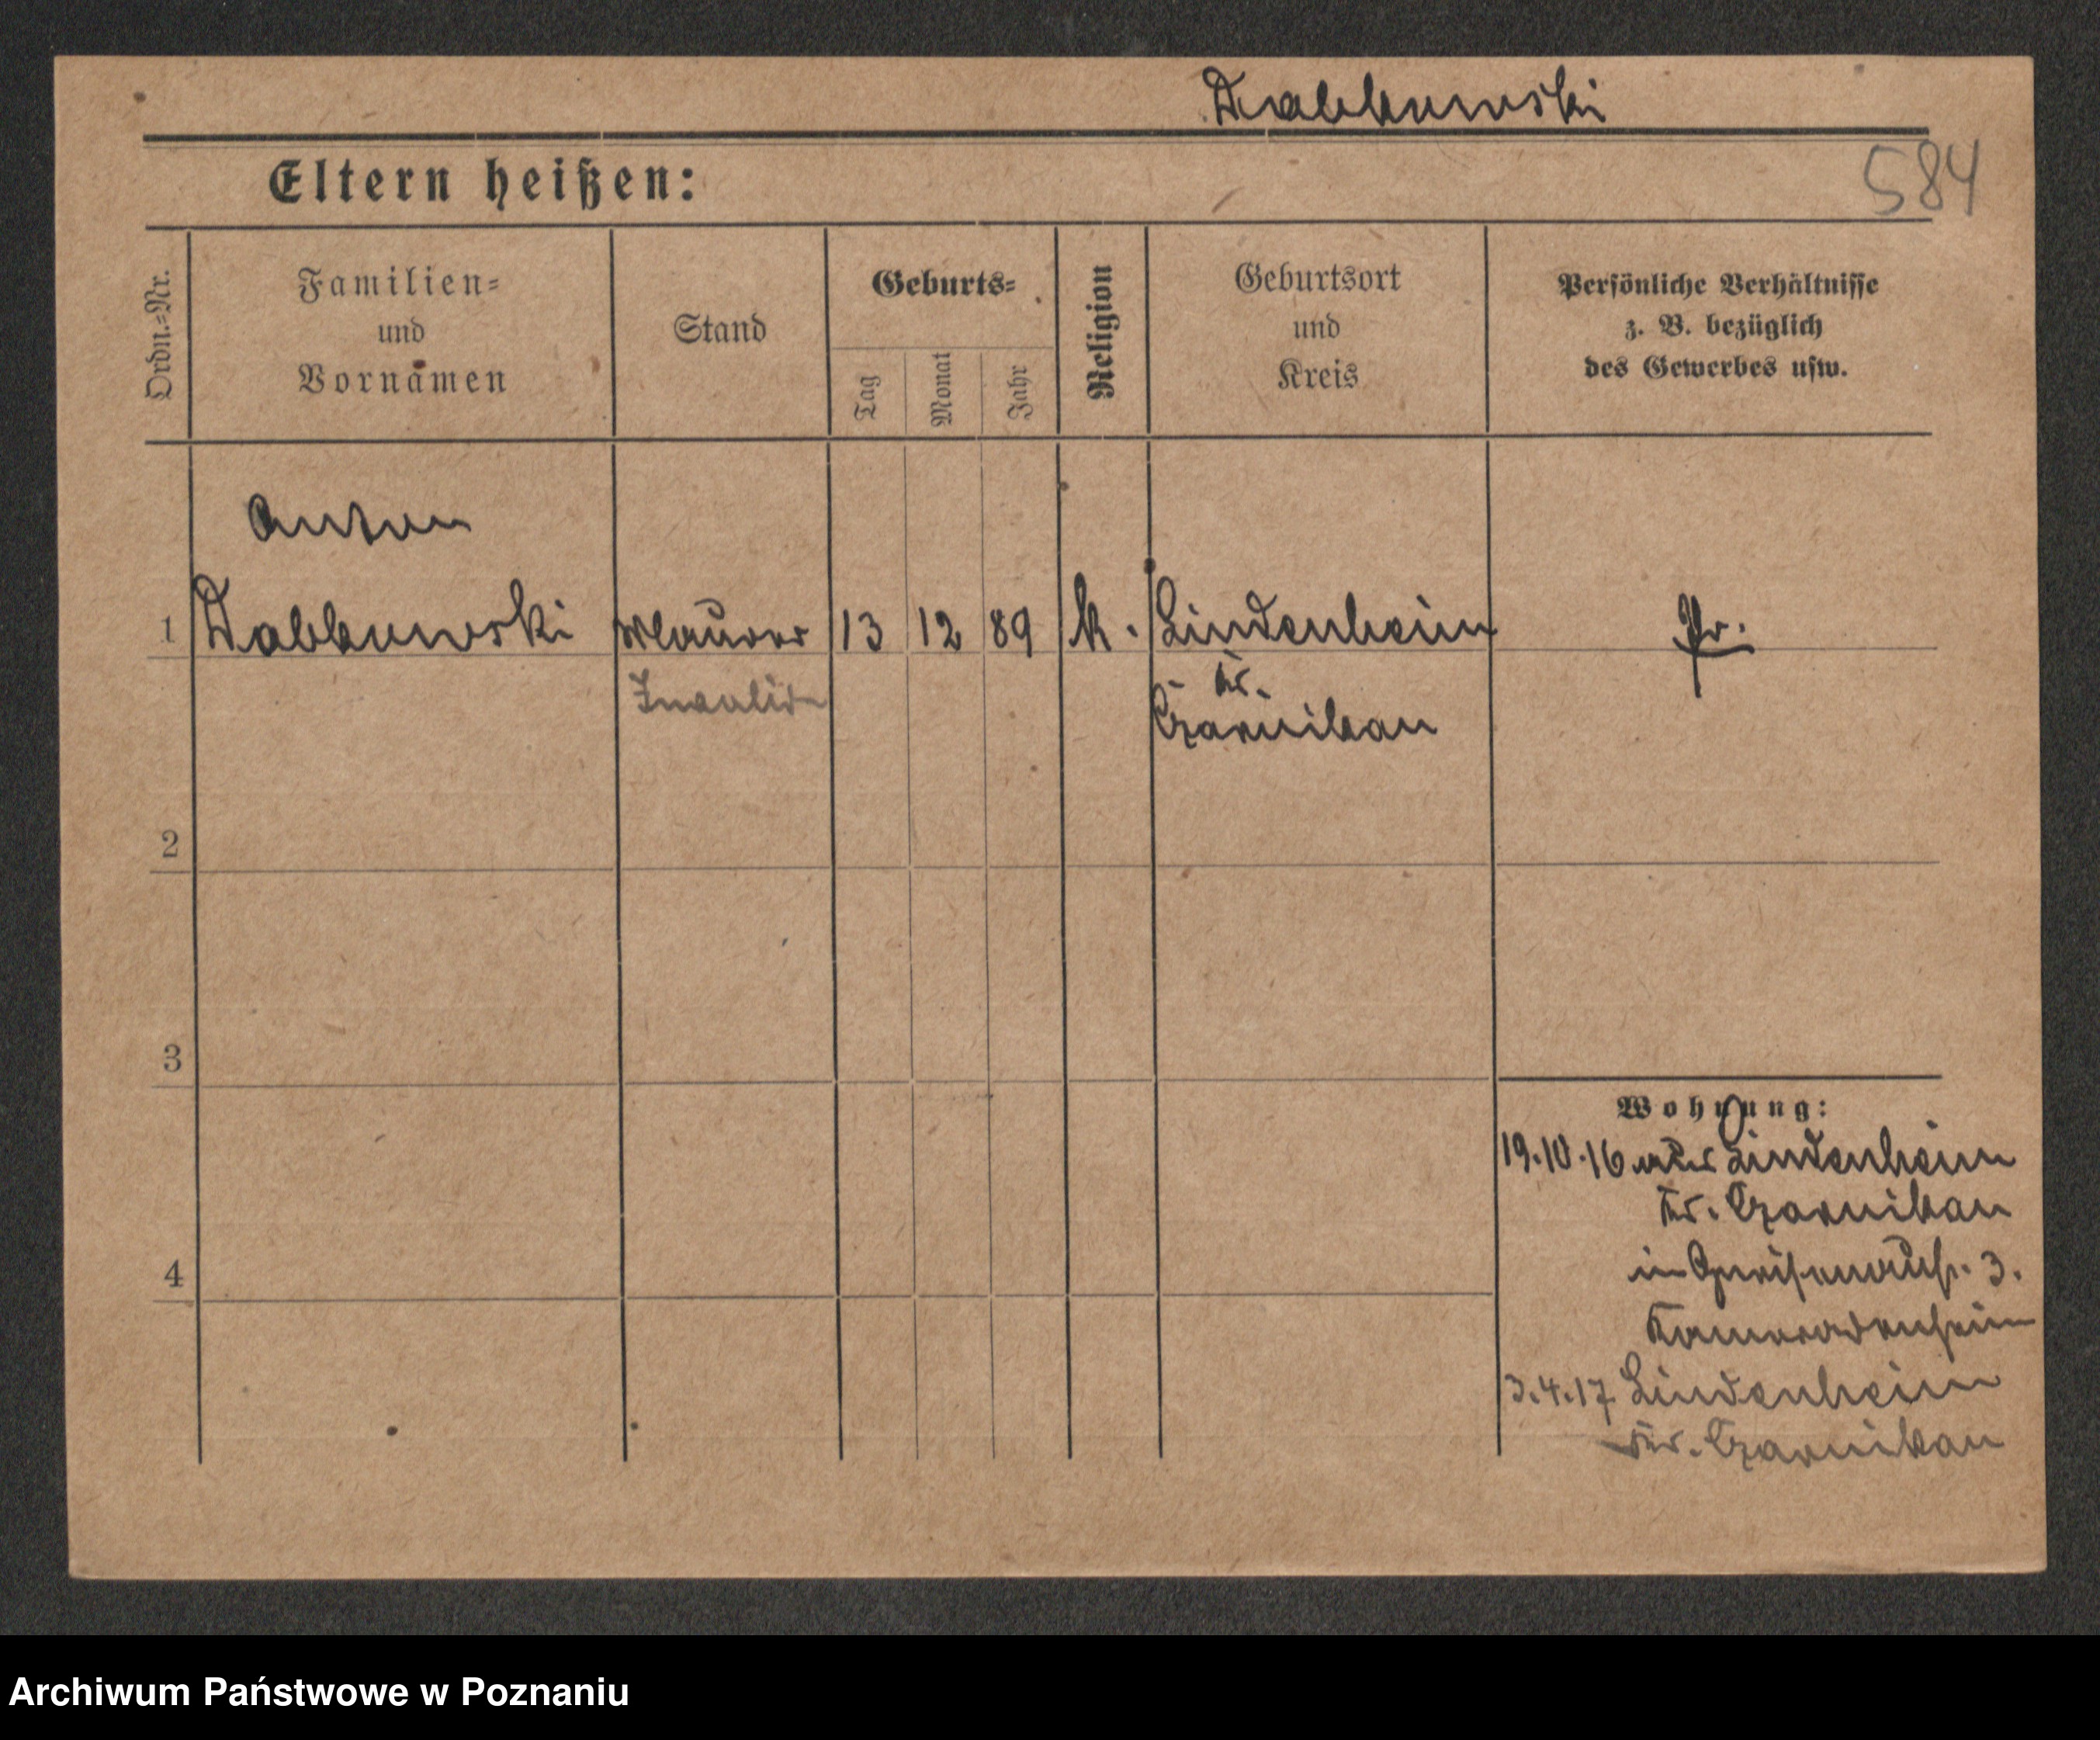 Dabkowski
584
Eltern heißen:
Ordn.=Nr.
Familien=
und
Vornamen
Stand
Geburts=
Tag
Monat
Jahr
Religion
Geburtsort
und
Kreis
Persönliche Verhältnisse
z. B. bezüglich
des Gewerbes usw.
Anton
1 Dabkowski Maurer 13 12 89 k. Lindenheim Pr.
Invalide
Kr.
Czarnikau
2
3
4
Wohnung:
19.10.16 aus Lindenheim
Kr. Czarnikau
in 3.
Kameradenheim
3.4.17 Lindenheim
Kr. Czarnikau
Archiwum Państwowe w Poznaniu